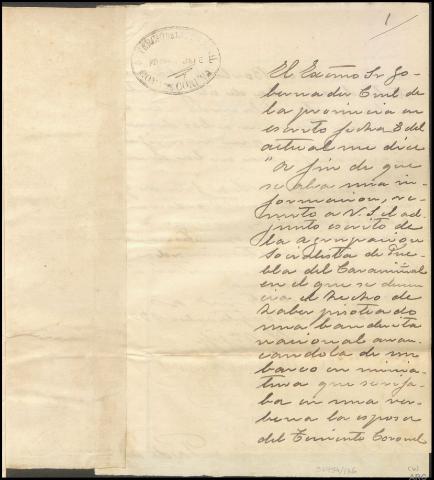 1
El Excmo Sr Go-
bernador Civil de
la provincia en
escrito fecha 8 del
actual me dice
"A fin de que
se abra una in-
formacion, re-
mito a V. S. el ad-
junto escrito de
la agrupacion
socialista de Pue-
bla del Caramiñal
en el que se denun-
cia el hecho de
haber pisoteado
una bandera
nacional arran-
candola de un
barco en minia-
tura que se rifa-
ba en una ver-
bena la esposa
del Teniente Coronel